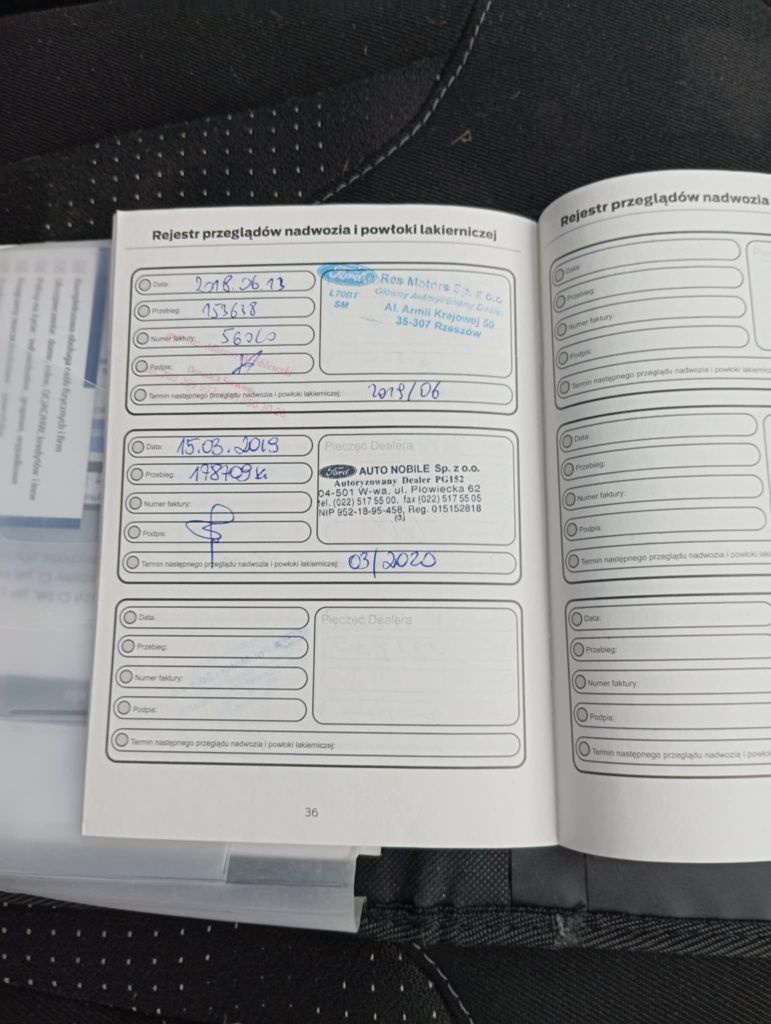 Rejestr przeglądów nadwozia i powłoki lakierniczej
Data: 2018.06.13
Przebieg: 153638
Numer faktury:
Podpis:
Ford Ros Motors Sp. z o.o.
L70BT Główny Autoryzowany Dealer
SM Al. Armii Krajowej 50
35-307 Rzeszów
Termin następnego przeglądu nadwozia i powłoki lakierniczej: 2019/06
Data: 15.03.2019
Przebieg: 178709
Numer faktury:
Podpis:
Pieczęć Dealera
Ford AUTO NOBILE Sp. z o.o.
Autoryzowany Dealer PG152
04-501 W-wa, ul. Płowiecka 62
tel. (022) 517 55 00, fax (022) 517 55 05
NIP 952-18-95-458, Reg. 015152818
(3)
Termin następnego przeglądu nadwozia i powłoki lakierniczej: 03/2020
Data:
Przebieg:
Numer faktury:
Podpis:
Pieczęć Dealera
Termin następnego przeglądu nadwozia i powłoki lakierniczej:
36
Rejestr przeglądów nadwozia
Data:
Przebieg:
Numer faktury:
Podpis:
Termin następnego przeglądu nadwozia i powłoki
Data:
Przebieg:
Numer faktury:
Podpis:
Termin następnego przeglądu nadwozia i powłoki
Data:
Przebieg:
Numer faktury:
Podpis:
Termin następnego przeglądu nadwozia i powłoki